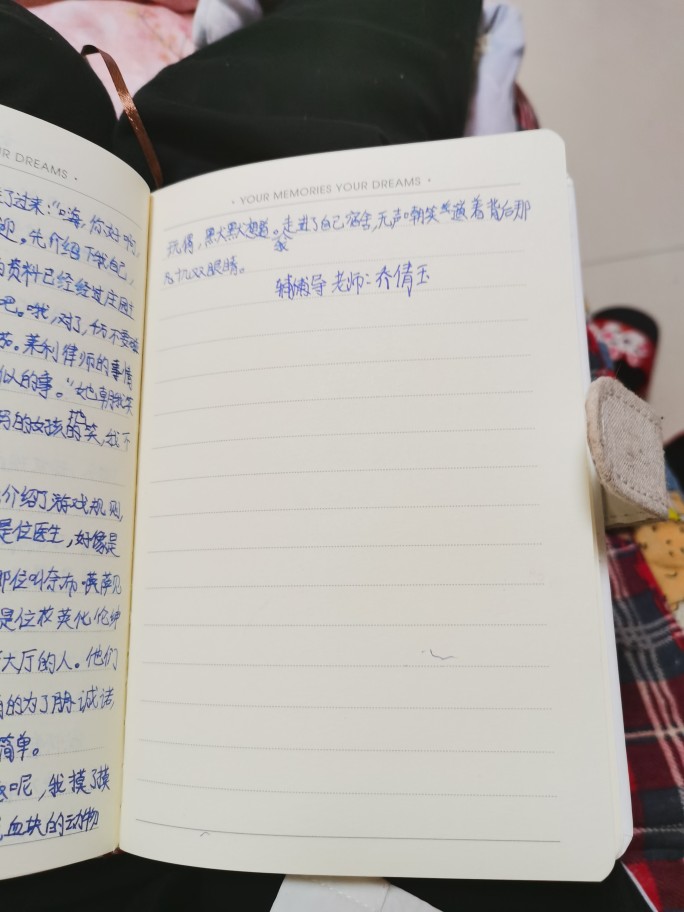 R DREAMS ·
了过来:"嗨,你好啊,
迎。先介绍下我自己,
资料已经经过庄园主
吧。哦,对了,千万不要
茄。莱利律师的事情
似的事。"她朝我笑
的女孩的笑,我不
她
介绍了游戏规则,
是位医生,好像是
那位叫奈布·萨见
是位
大厅的人。他们
的为了 诚诺,
简单。
呢,我摸了摸
血块的动物
· YOUR MEMORIES YOUR DREAMS ·
走进了自己宿舍,无声嘲笑 着背后那
几十双眼睛。
辅导老师:乔倩玉